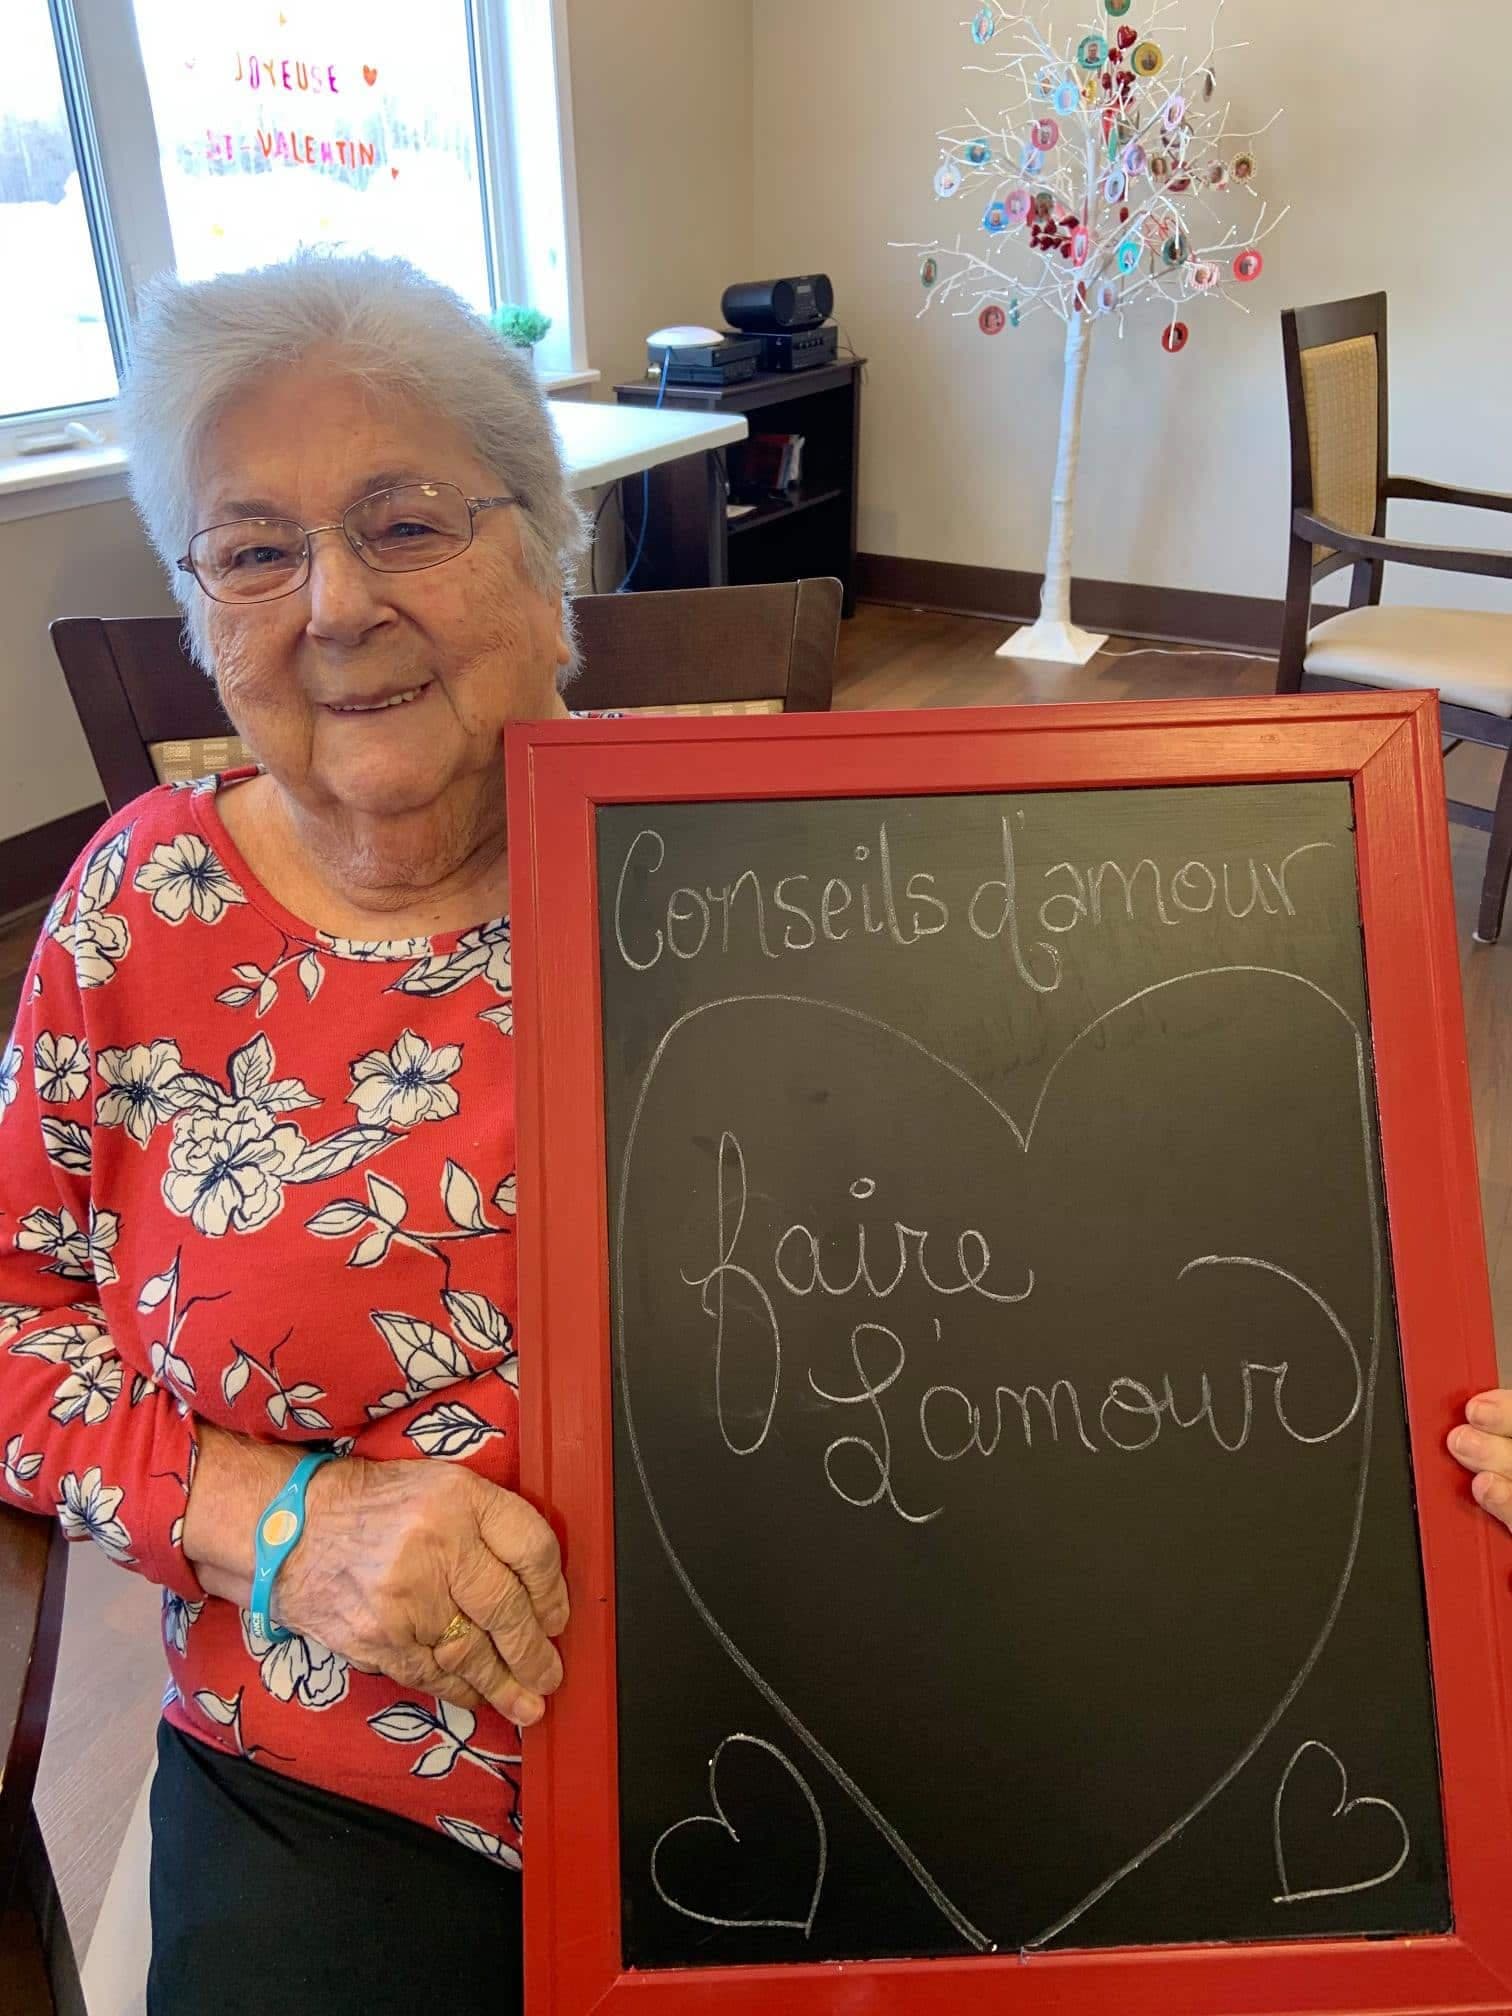 JOYEUSE
ST-VALENTIN
Conseils d'amour
faire
L'amour